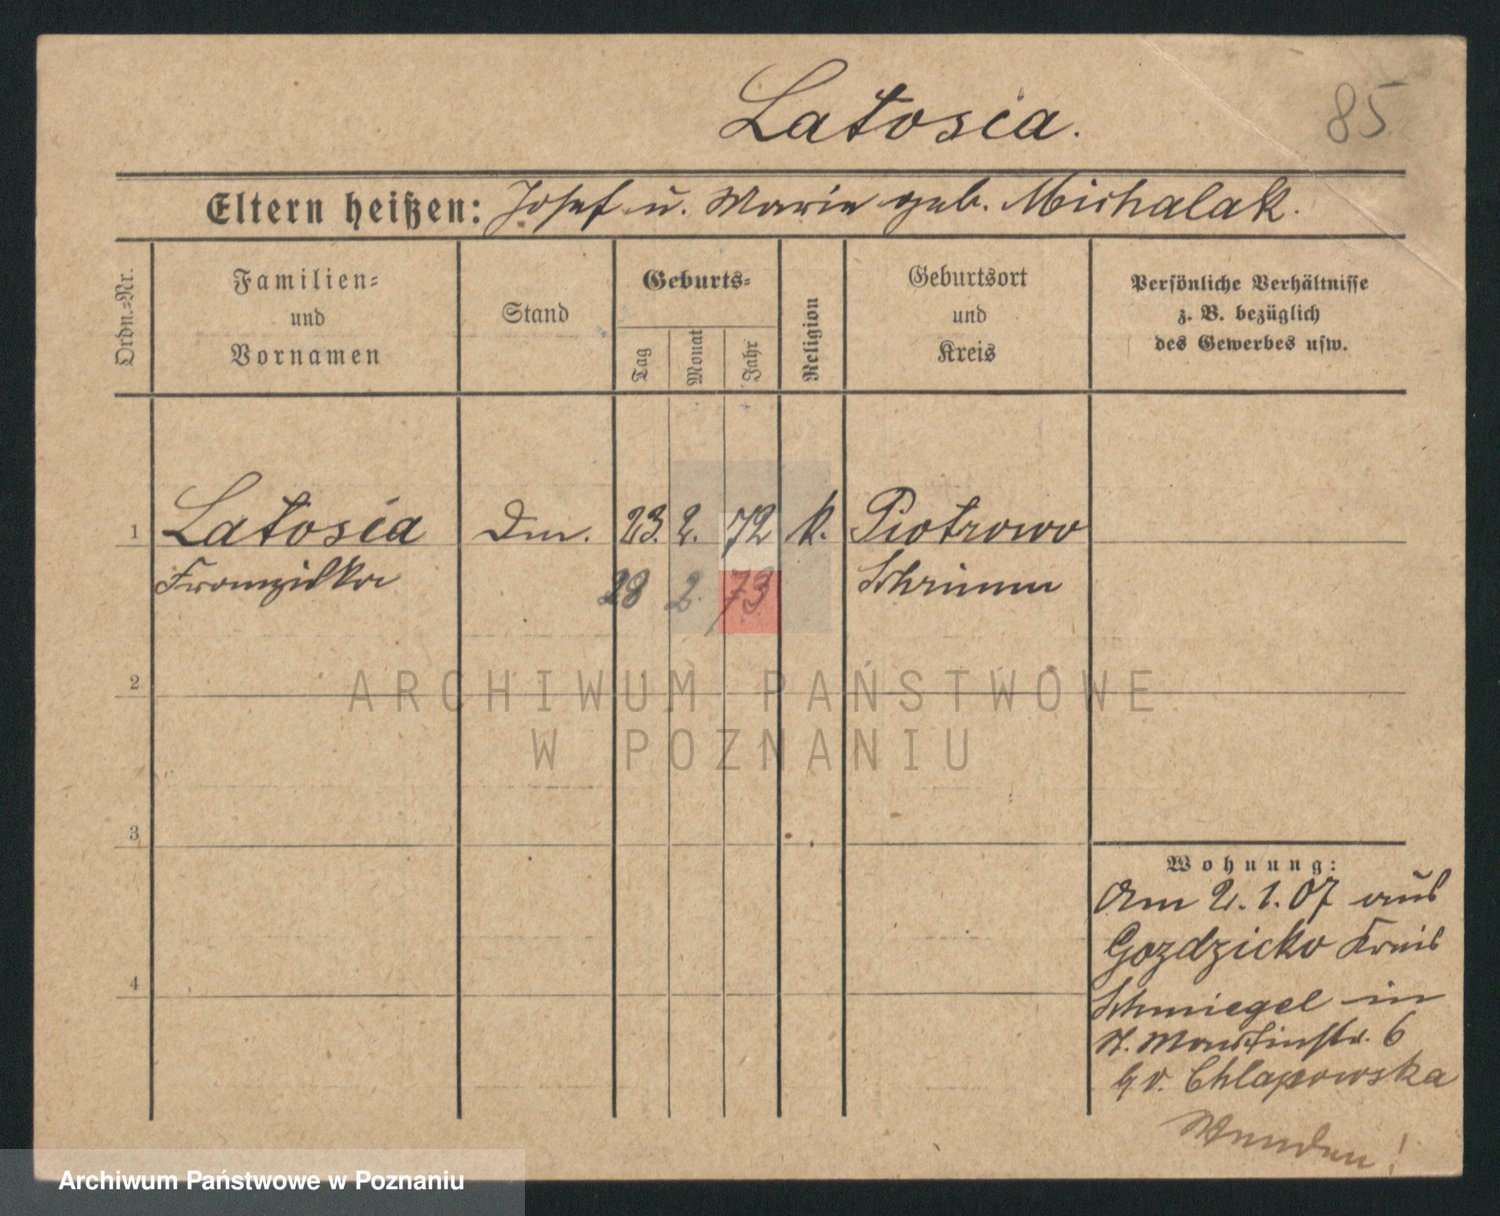 Latosia.
85
Eltern heißen: Josef u. Marie geb. Michalak.
Ordn.-Nr.
Familien-
und
Vornamen
Stand
Geburts-
Tag
Monat
Jahr
Religion
Geburtsort
und
Kreis
Persönliche Verhältnisse
z. B. bezüglich
des Gewerbes usw.
1 Latosia Dm. 23. 2. 72 k. Piotrowo
Franziska 28 2. 73 Schrimm
2
ARCHIWUM PAŃSTWOWE
W POZNANIU
3
Wohnung:
Am 2.1.07 aus
Gozdzicko Kreis
4
Schmiegel in
St. Martinstr. 6
b/ v. Chlapowska
Wenden!
Archiwum Państwowe w Poznaniu